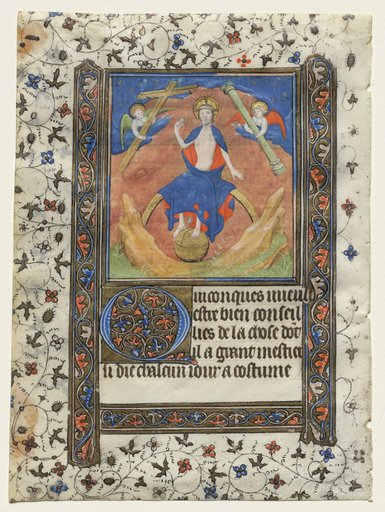 Quiconques vueult
estre bien conseil
lies de la chose dot
il a grant mestier
si die chascun iour a coustume